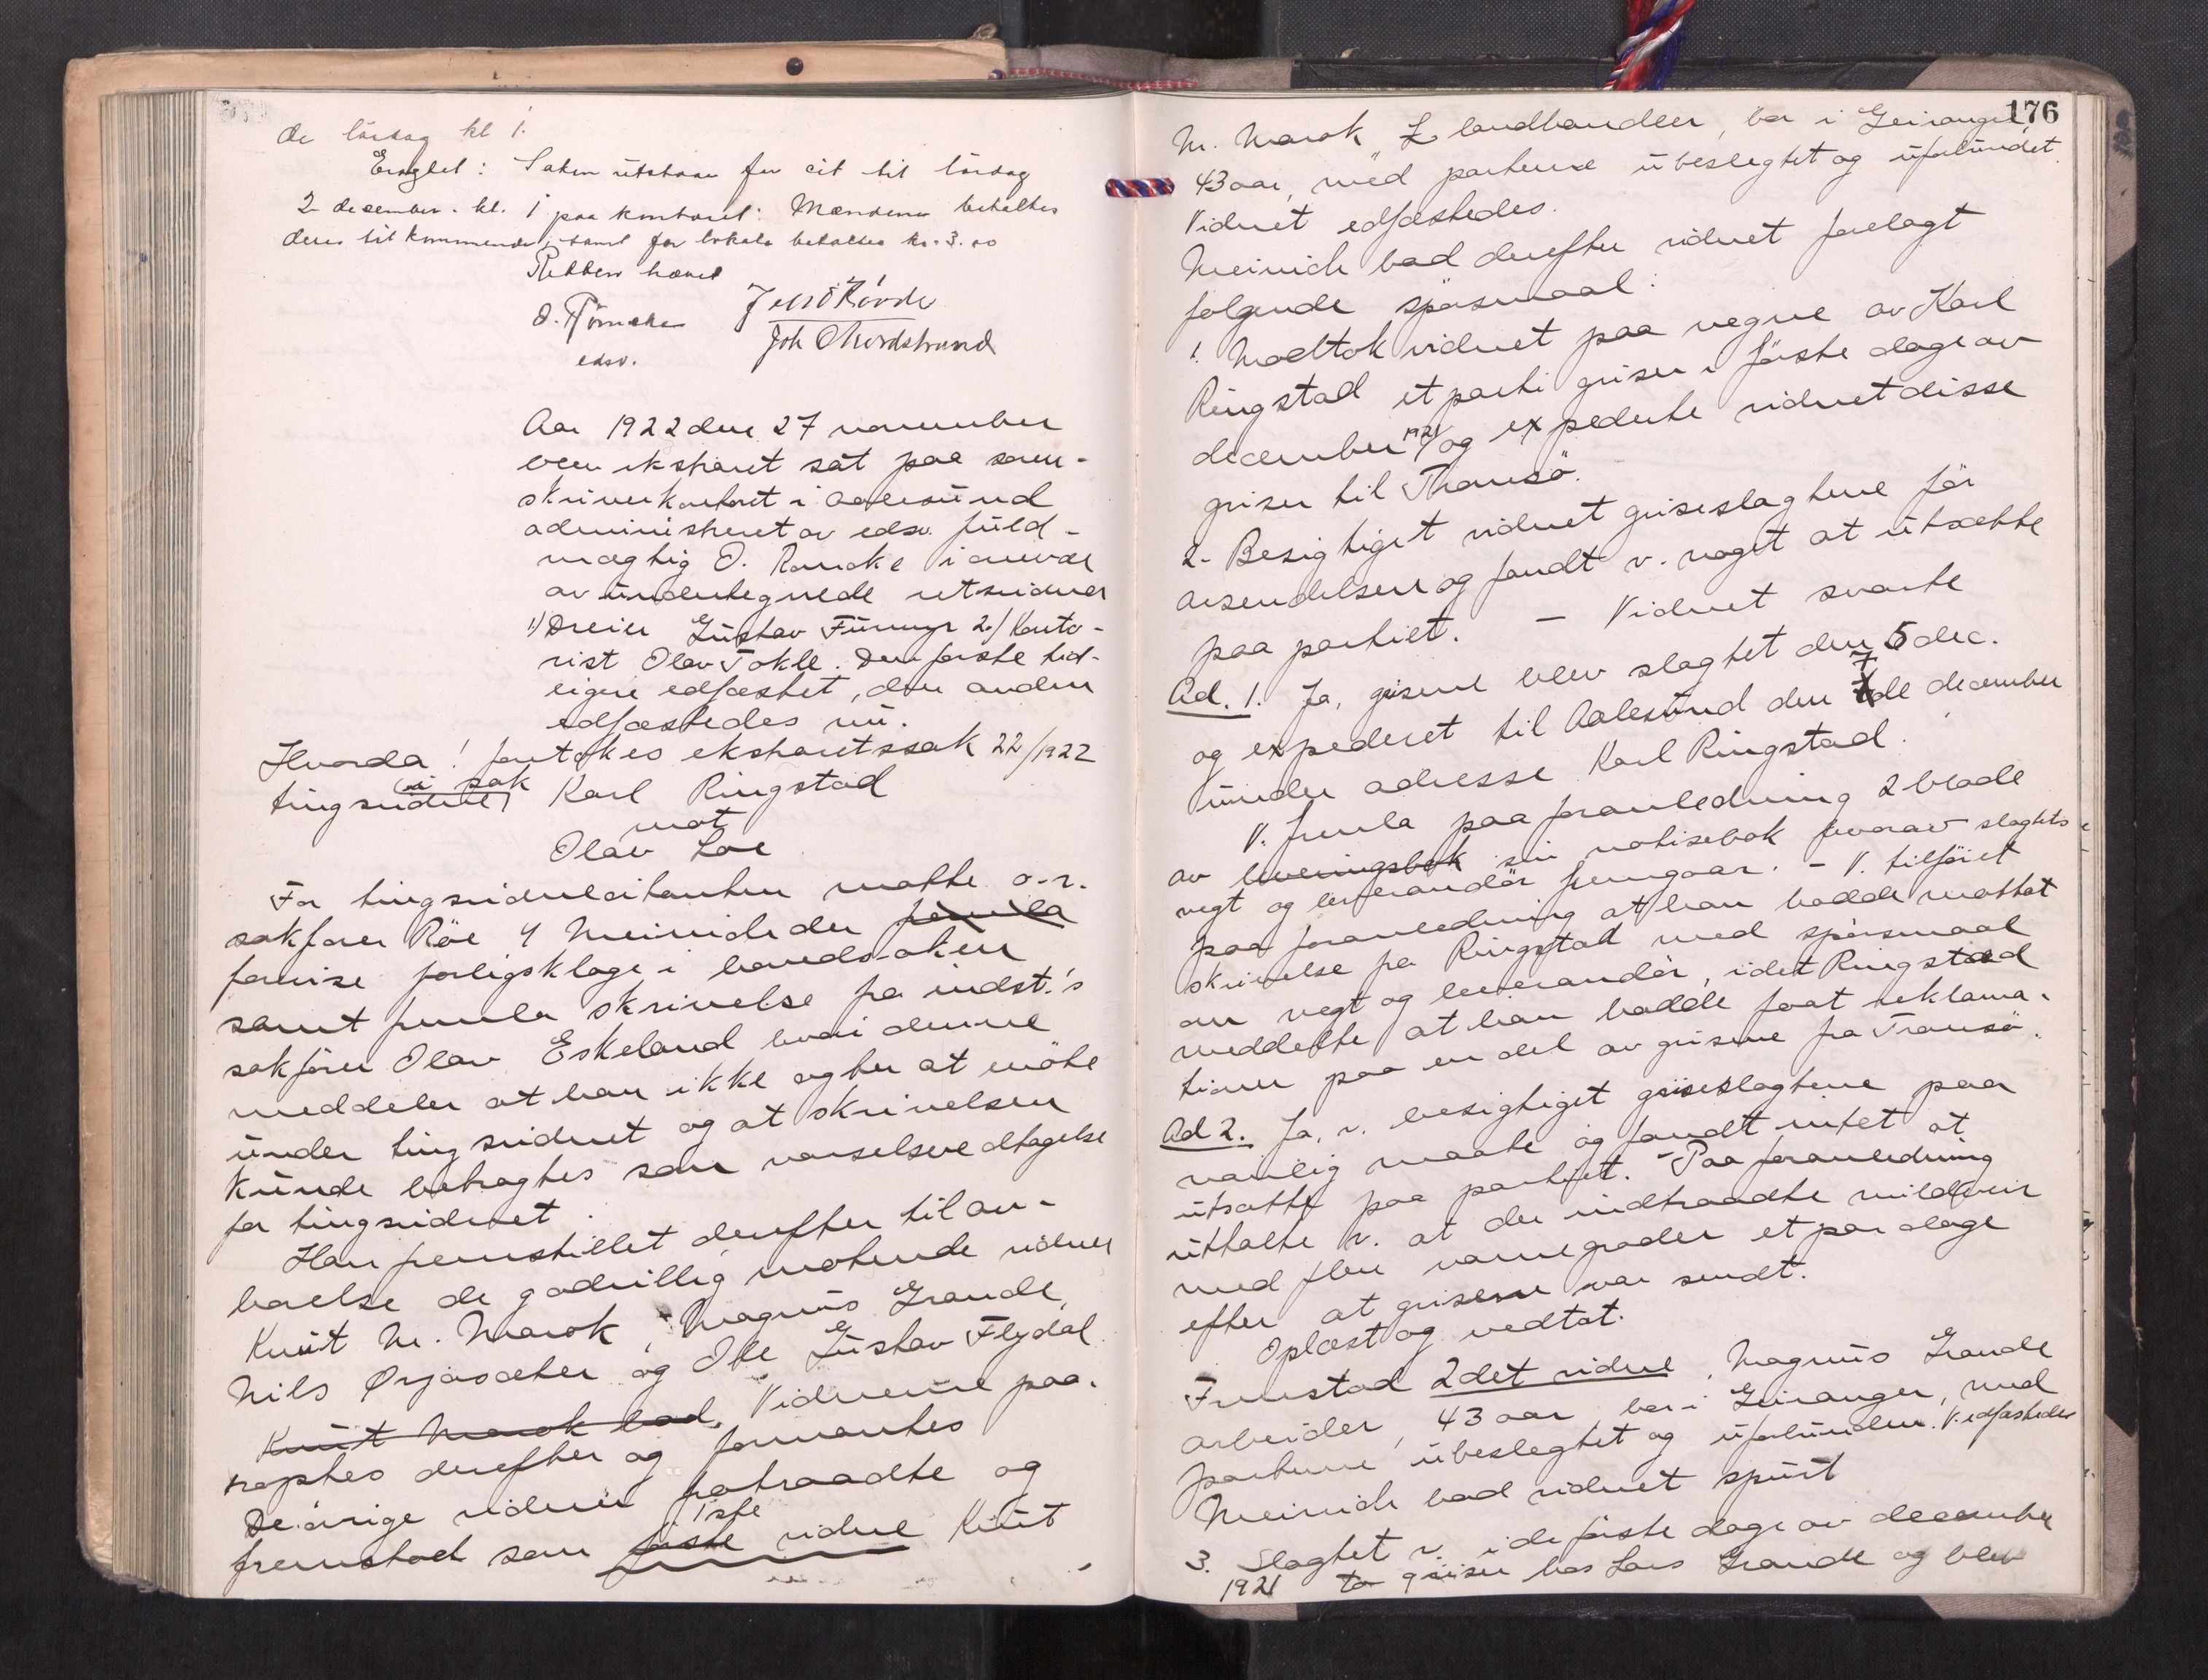 de lördag kl 1.
Eragtet: Saken utstaar før eit til lördag
2 desember. kl. 1 paa kontoret. Mændene betaltes
deres tilkommende, samt for lokale betaltes kr. 3.00
Retten hævet
O. Rømcke
edsv.
Joh Nordstrand
Aar 1922 den 27 november
blev ekstraret sat paa soren-
skriverkontoret i Aalesund
administreret av edsv. fuld-
mægtig O. Romcke i nærvær
av undertegnede retsvidner
1) Dreier Gustav Furmyr 2./ Konto-
rist Olav Tokle. Den første tid-
ligere edfæstet, den anden
edfæstedes nu.
Hvorda! foretokes ekstraretssak 22/1922
tingsvidne i sak Karl Ringstad
mot
Olav Loe
For tingsvidneleitanten møtte o.r.
sakfører Röe v/ Meinich der femla
foreviste forligsklage i hovedsaken
samt fremla skrivelse fra indst.'s
sakförer Olav Eskeland hvori denne
meddeler at han ikke agter at möte
under tingsvidnet og at skrivelsen
kunde betragtes som varselsvedtagelse
for tingsvidnet.
Han fremstillet derefter til av-
hørelse de godvillig møtende vidner
Knut M. Marok, Magnus Grande,
Nils Ørjasæter og Ole Gustav Flydal.
Knut Marok bad. Vidnerne paa-
roptes derefter og formantes
De övrige vidner fratraadte og
1ste
fremstod som första vidne Knut
176
M. Marok, landhandler, bor i Geiranger,
43 aar, med parterne ubeslegtet og uforbundet
Vidnet edfæstedes.
Meinich bad derefter vidnet forelagt
følgende spörsmaal:
1. Modtok vidnet paa vegne av Karl
Ringstad et parti griser i første dage av
december 1921 og expederte vidnet disse
griser til Tromsö.
2. Besigtiget vidnet griseslagtene för
avsendelsen og fandt v. noget at utsætte
paa partiet. – Vidnet svarte
Ad. 1. Ja, grisene blev slagtet den 5 dec.
og expederet til Aalesund den 7de december
under adresse Karl Ringstad.
V. fremla paa foranledning 2 blade
av leveringsbok sin notisebok hvorav slagtets
vegt og leverandör fremgaar. – V. tilföiet
paa foranledning at han hadde mottat
skrivelse fra Ringstad med spörsmaal
om vegt og leverandör, idet Ringstad
meddelte at han hadde faat reklama-
tioner paa en del av grisene fra Tromsö.
Ad 2. Ja, v. besigtiget griseslagtene paa
vanlig maate og fandt intet at
utsætte paa partiet. – Paa foranledning
uttalte v. at der indtraadte mildveir
med flere varmegrader et par dage
efter at grisene var sendt.
Oplæst og vedtat.
Fremstod 2det vidne, Magnus Grande
arbeider, 43 aar, bor i Geiranger, med
parterne ubeslegtet og uforbunden. V. edfæstedes
Meinich bad vidnet spurt
3. Slagtet v. i de første dage av december
1921 to griser hos Lars Grande og blev